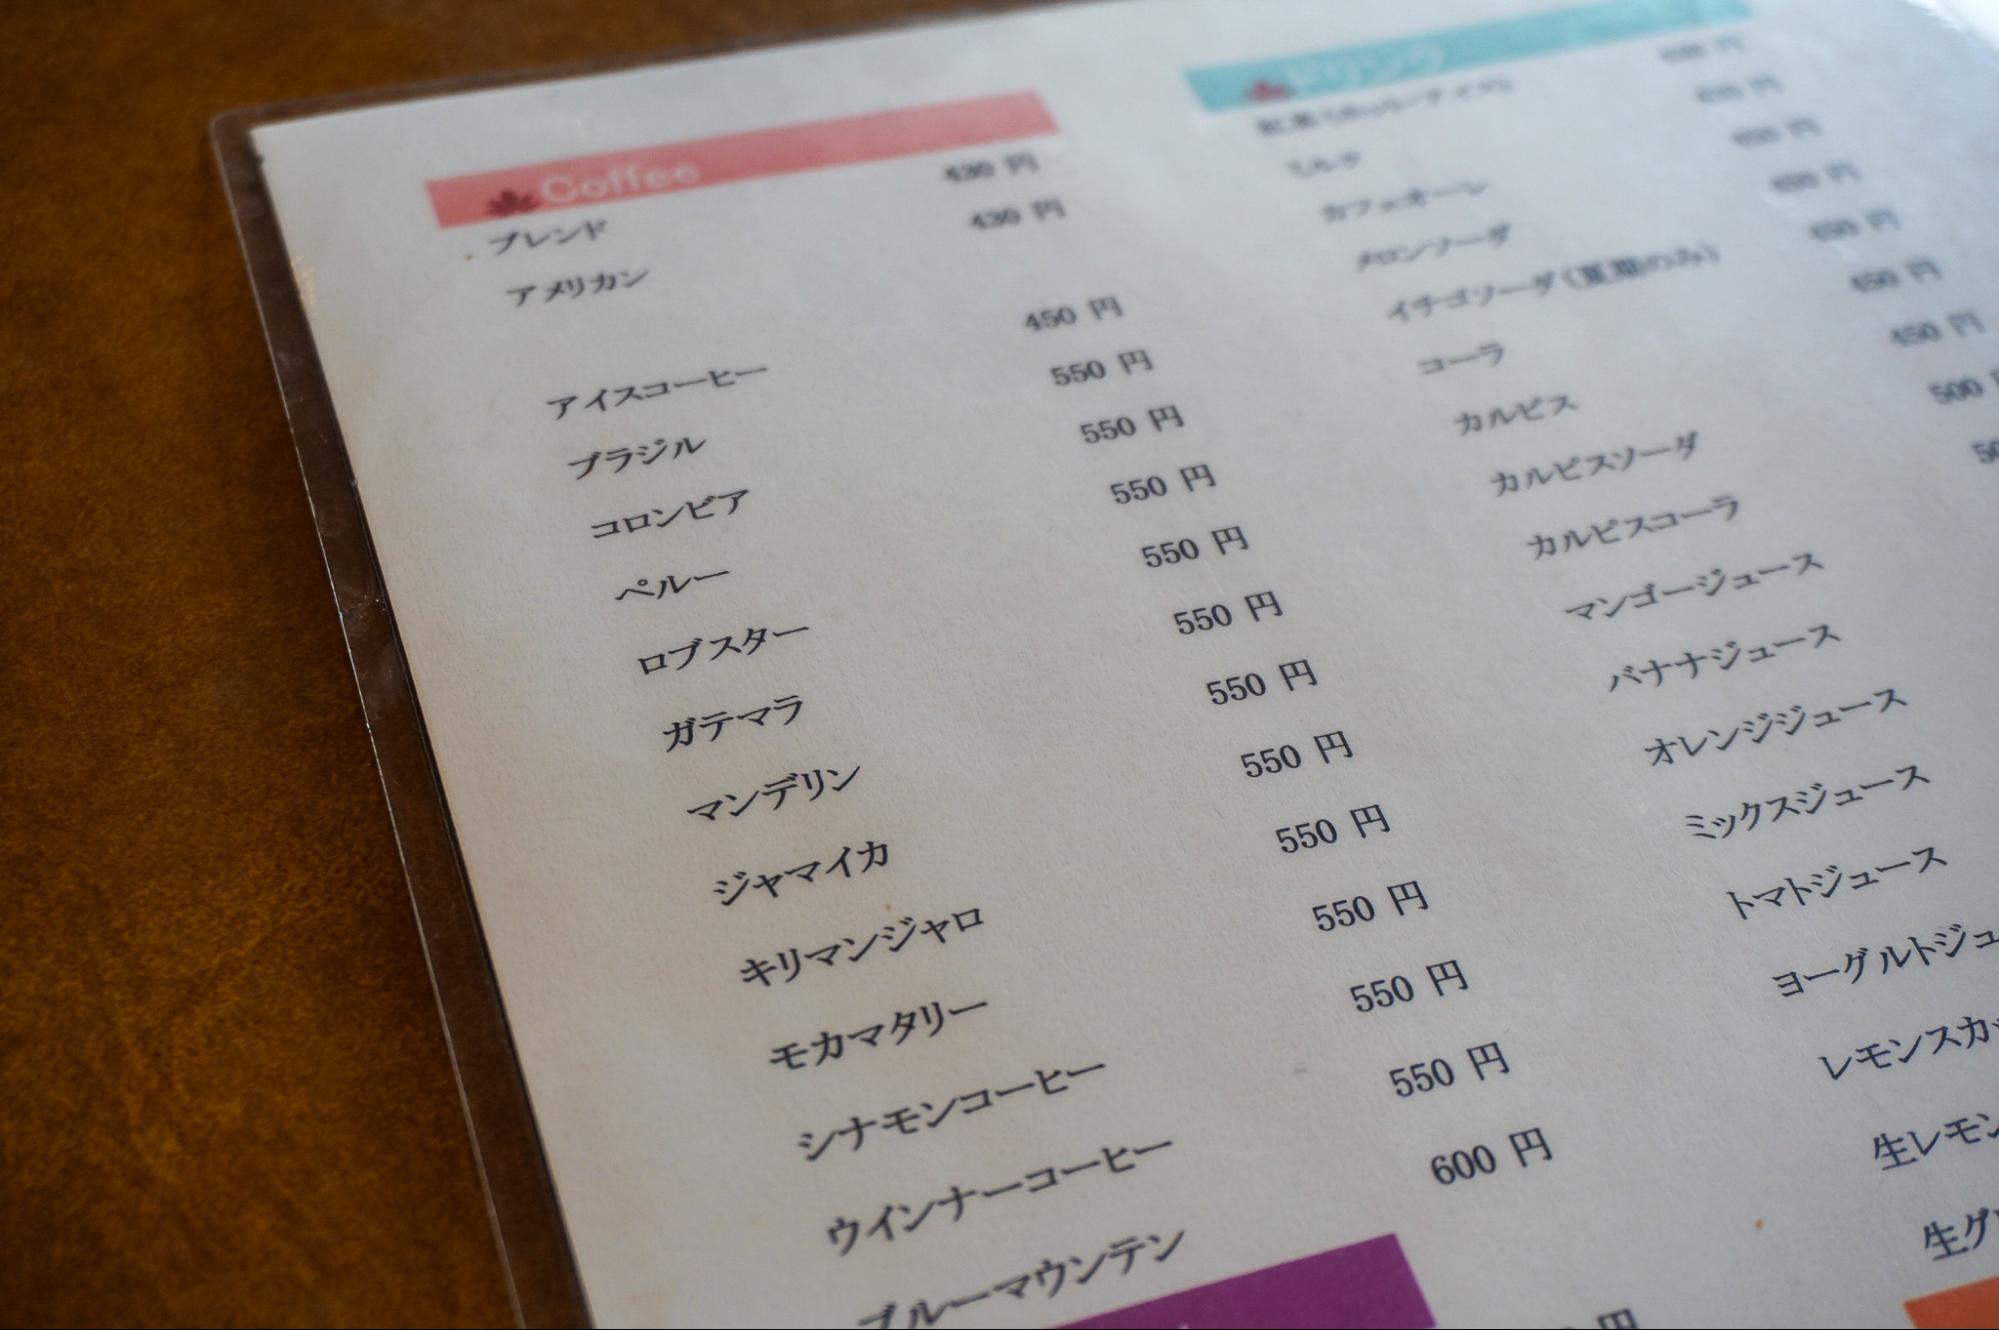 Coffee
ブレンド 430 円
アメリカン 430 円
アイスコーヒー 450 円
ブラジル 550 円
コロンビア 550 円
ペルー 550 円
ロブスター 550 円
ガテマラ 550 円
マンデリン 550 円
ジャマイカ 550 円
キリマンジャロ 550 円
モカマタリー 550 円
シナモンコーヒー 550 円
ウインナーコーヒー 550 円
ブルーマウンテン 600 円
ドリンク
紅茶(ホット・アイス)
ミルク
カフェオーレ
メロンソーダ
イチゴソーダ(夏期のみ) 450 円
コーラ 450 円
カルピス 450 円
カルピスソーダ 500
カルピスコーラ
マンゴージュース
バナナジュース
オレンジジュース
ミックスジュース
トマトジュース
ヨーグルトジュ
レモンスカッ
生レモン
生グ
円